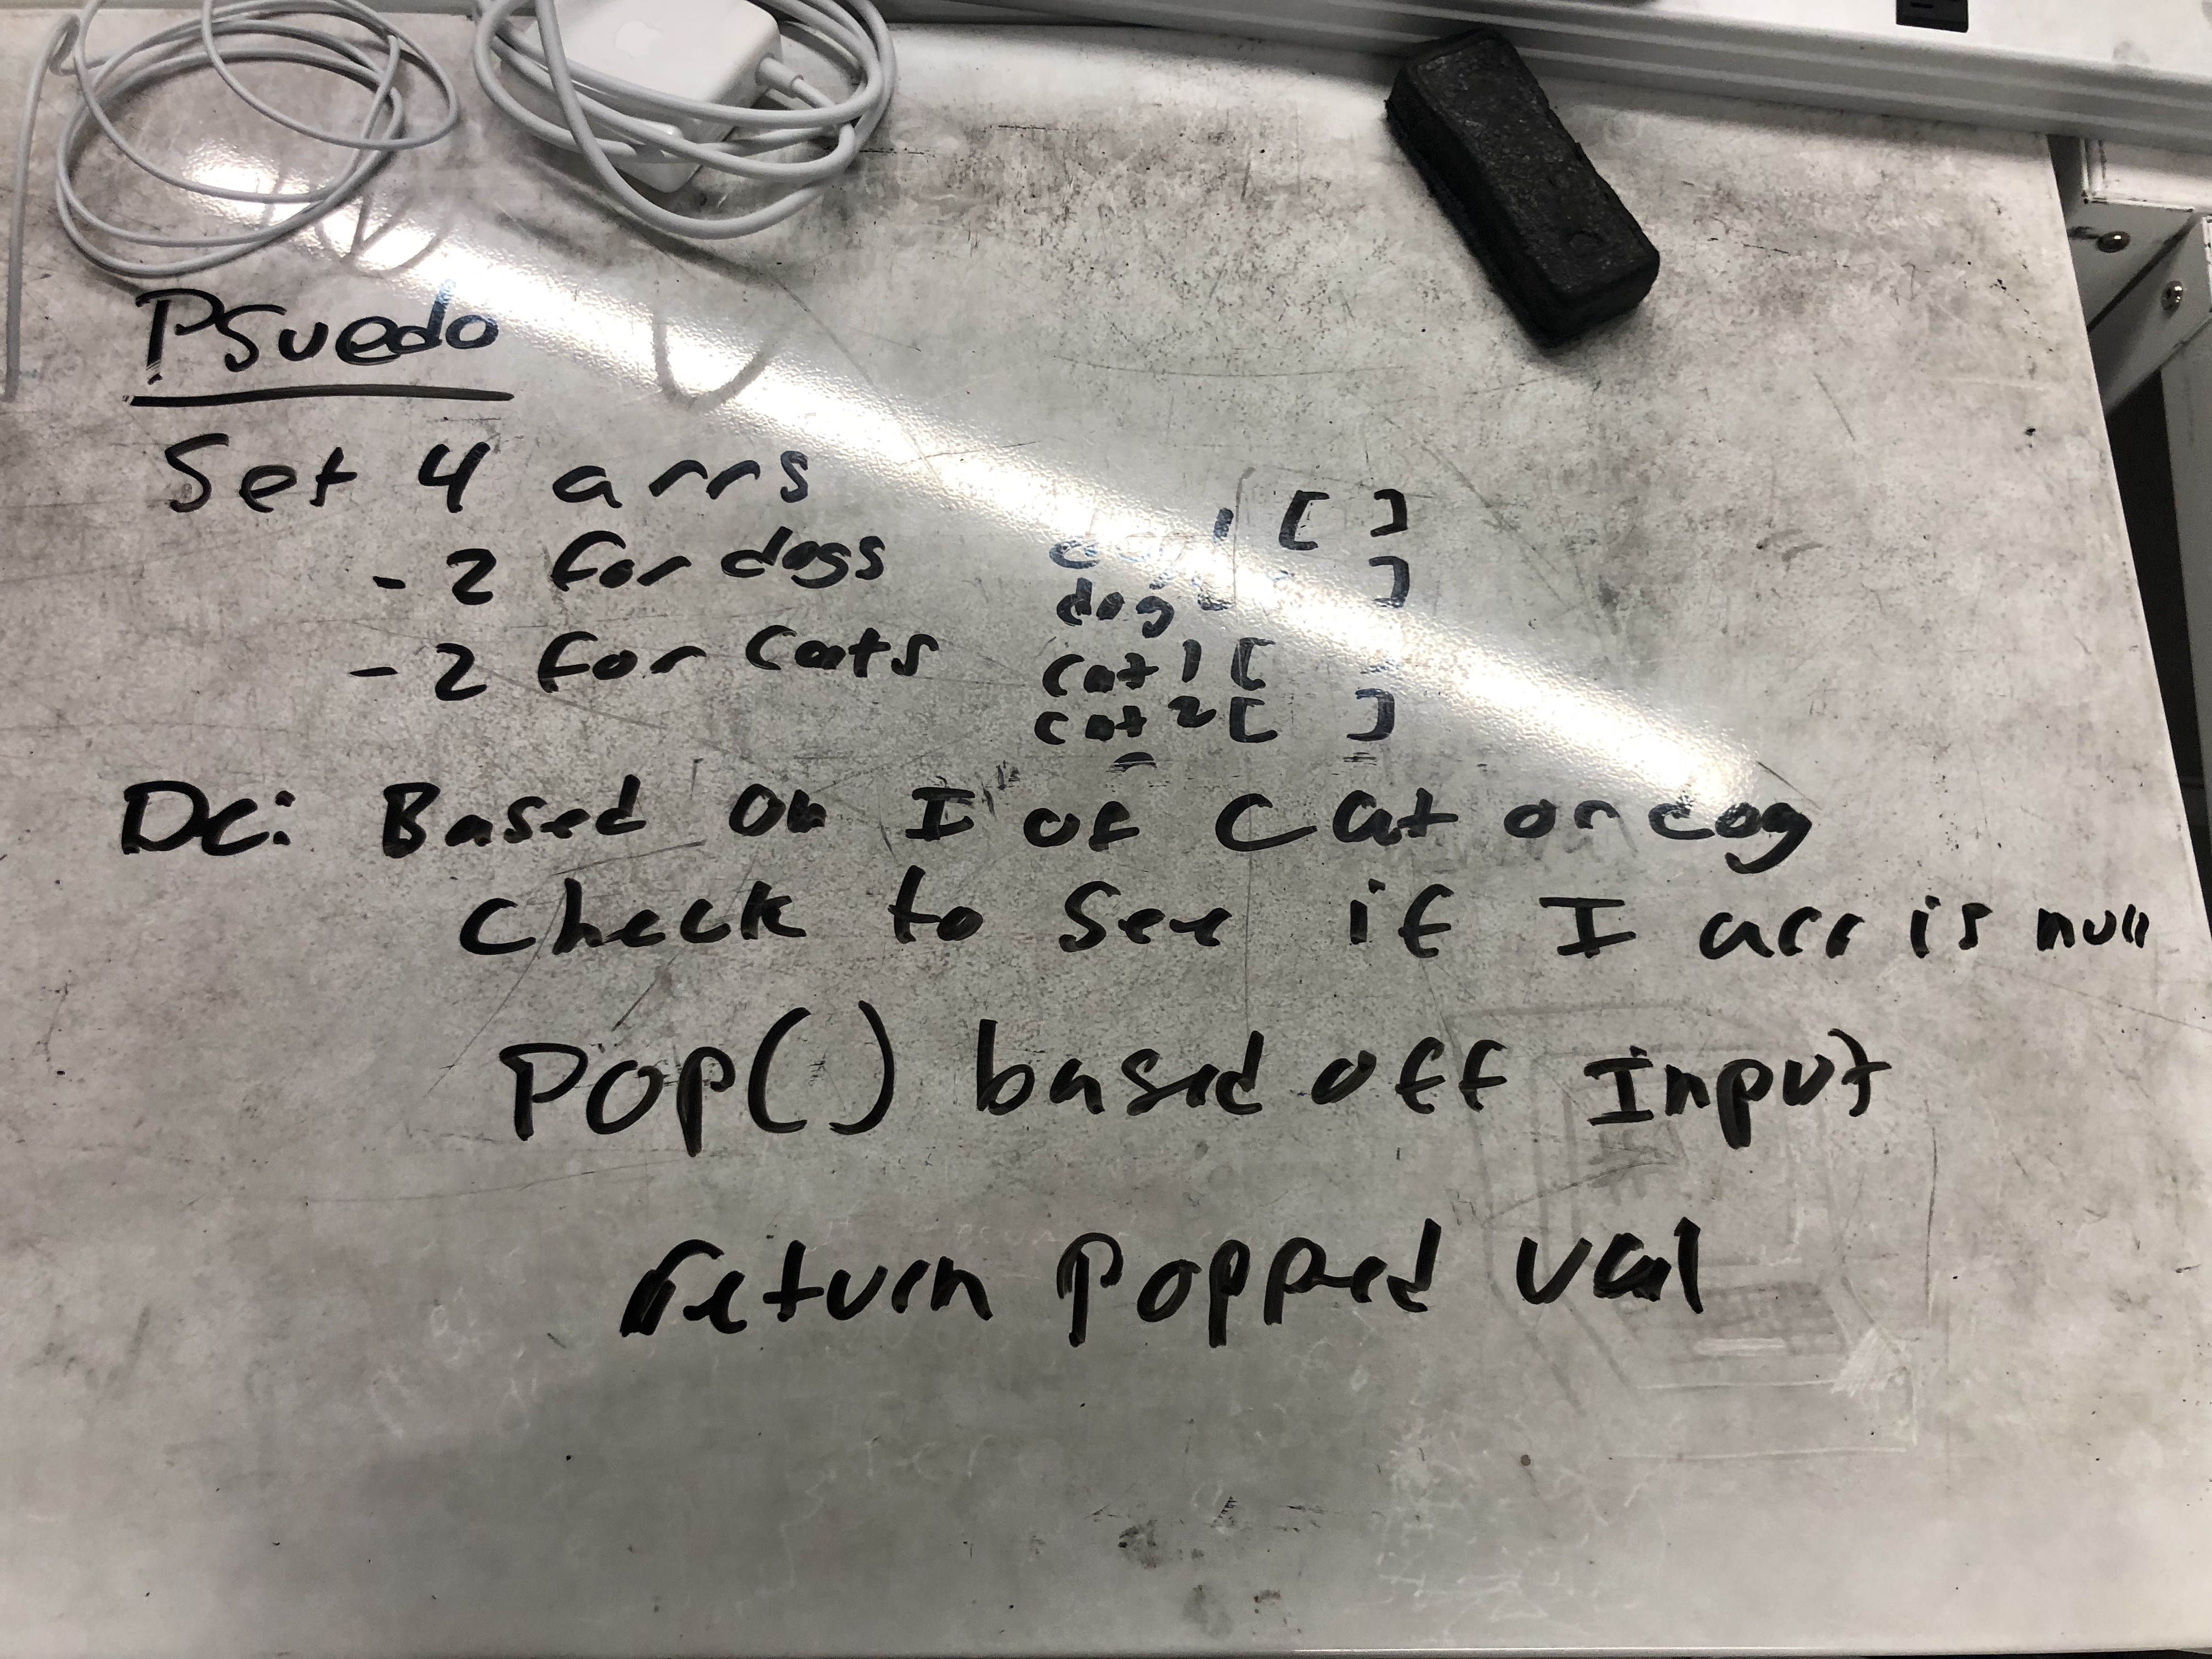 PSuedo
Set 4 arrs
- 2 for dogs
- 2 for cats
dog1 [ ]
dog ]
cat1 [ ]
cat2 [ ]
DC: Based on I of Cat or dog
check to see if I arr is null
Pop() based off Input
return popped val